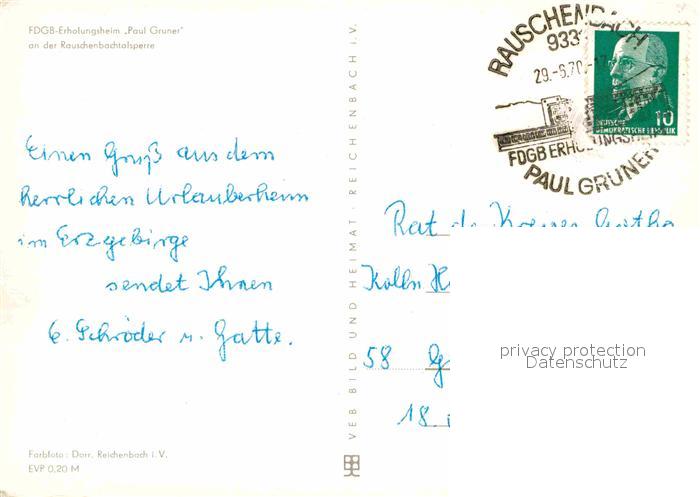 FDGB-Erholungsheim „Paul Gruner"
an der Rauschenbachtalsperre
Einen Gruß aus dem
herrlichen Urlauberheim
im Erzgebirge
sendet Ihnen
E. Schröder u. Gatte.
Farbfoto: Darr, Reichenbach i. V.
EVP 0,20 M
VEB BILD UND HEIMAT · REICHENBACH i. V.
RAUSCHENBACH
933
29.-6.70.-17
FDGB ERHOLUNGSHEIM
PAUL GRUNER
10
DEUTSCHE
DEMOKRATISCHE REPUBLIK
Rat d. Kreises Gotha
Kolln
58 G
18
privacy protection
Datenschutz